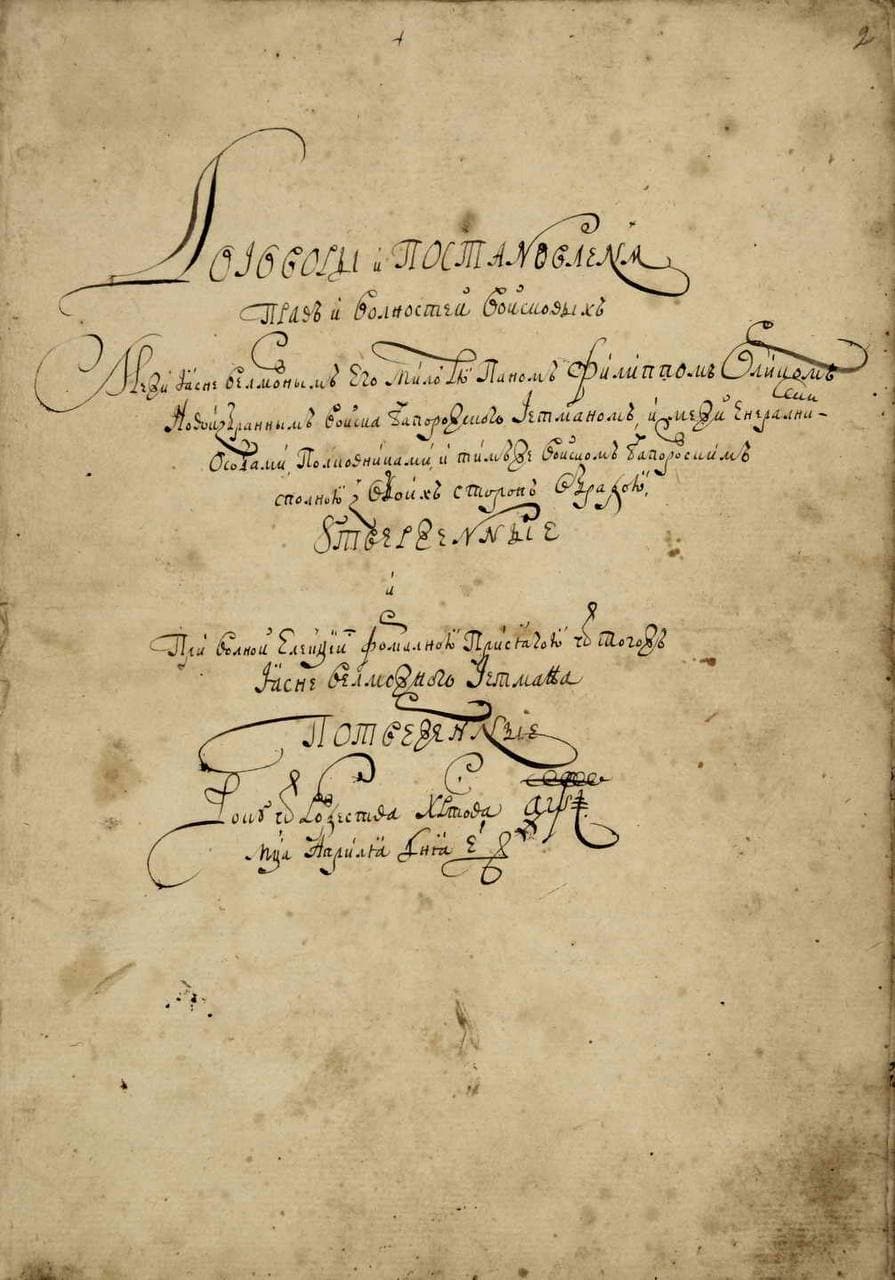 2
Договоры и Постановленя
Правъ и волностей войсковыхъ
Межи Ясне велможнымъ Его милостю Паномъ Филиппомъ Орликомъ
Новообраннымъ войска Запорожского Гетманомъ, и межи Енералними
Особами, Полковниками, и тимъже войскомъ Запорожскимъ
сполною з обоихъ сторонъ обрадою,
Утверженные
и
При волной Елекции формалною Присягою ѿ тогожъ
Ясне велможного Гетмана
Потверженные
Року ѿ Рожества Христова ҂аѱі
Мца Априлia Дня е